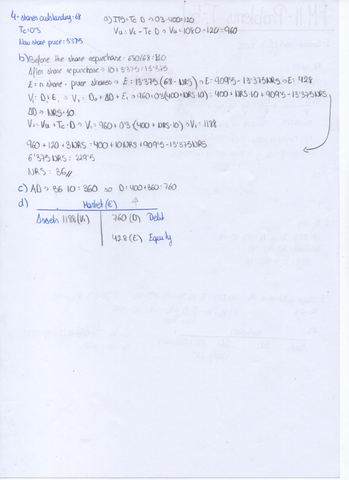 4- shares outstanding: 68
Tc: 0'3
New share price: 13'375
a) ITS= Tc·D → 0'3·400=120
Vu= VL - Tc·D → Vu= 1080-120=960
b) Before the share repurchase: 680/68=10
After share repurchase → 10+3'375=13'375
E= n share · price shares → E= 13'375 (68 - NRS) → E= 909'5-13'375NRS → E= 428
V1= D+E1 → V1= D0+ΔD+E1 → 960+0'3(400+NRS·10)= 400+NRS·10+909'5-13'375NRS
ΔD= NRS·10
V1= Vu+Tc·D → V1= 960+0'3(400+NRS·10) → V1= 1188
960+120+3NRS= 400+10NRS+909'5-13'375NRS
6'375NRS= 229'5
NRS= 36//
c) ΔD → 36·10=360 so D=400+360=760
d) Market (E)
Assets 1188 (V1) 760 (D) Debt
428 (E) Equity